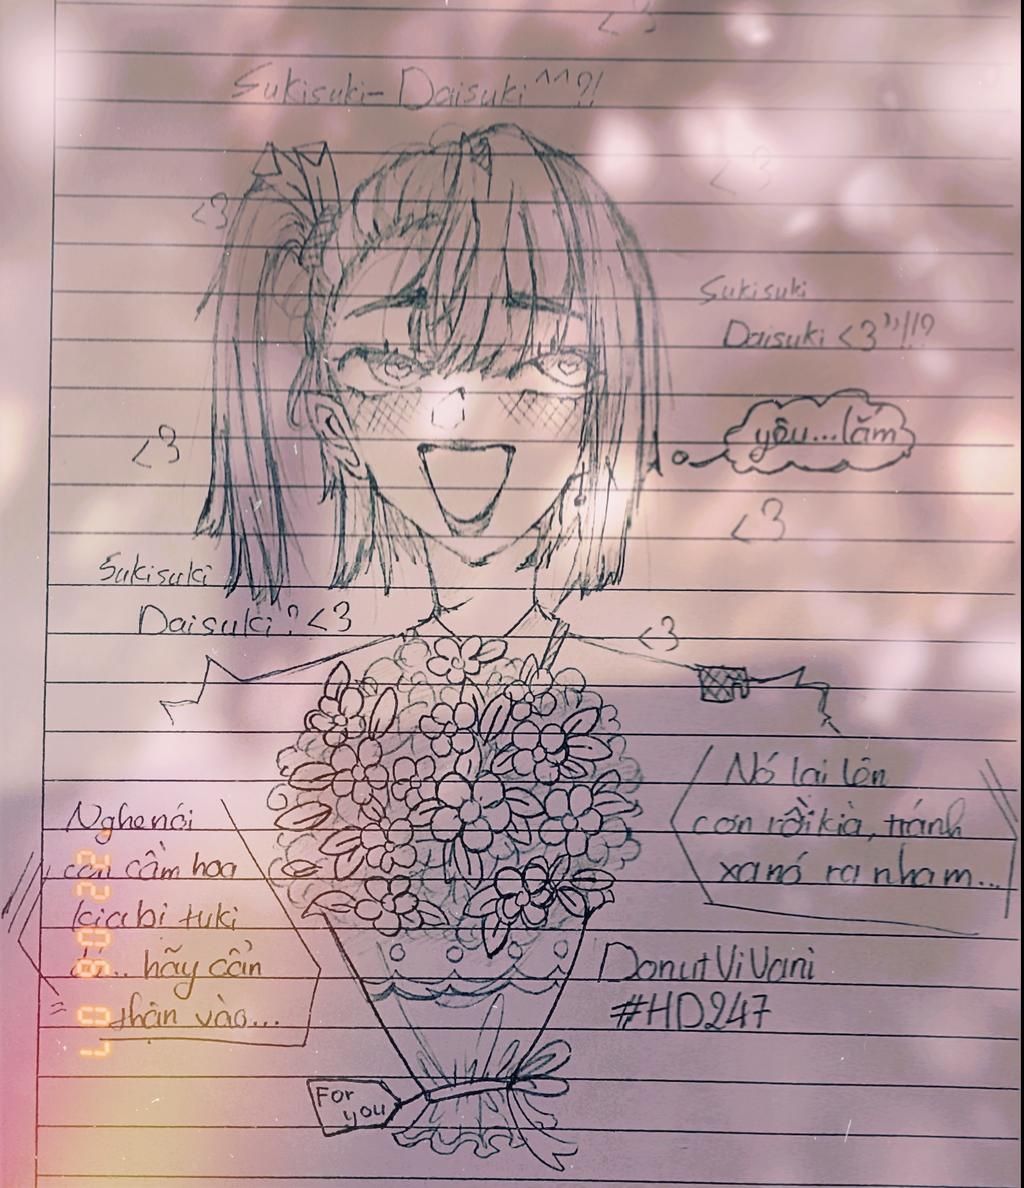 <3
Sukisuki- Daisuki ^^?!
<3
<3
Sukisuki
Daisuki <3"!!?
yêu...lắm
<3
<3
Sukisuki
Daisuki? <3
<3
Nó lại lên
cơn rồi kìa, tránh
xa nó ra nha m...
Nghe nói
con cầm hoa
kia bị tuki
hãy cẩn
thận vào...
DonutViVani
#HD247
For
you
07 09 22